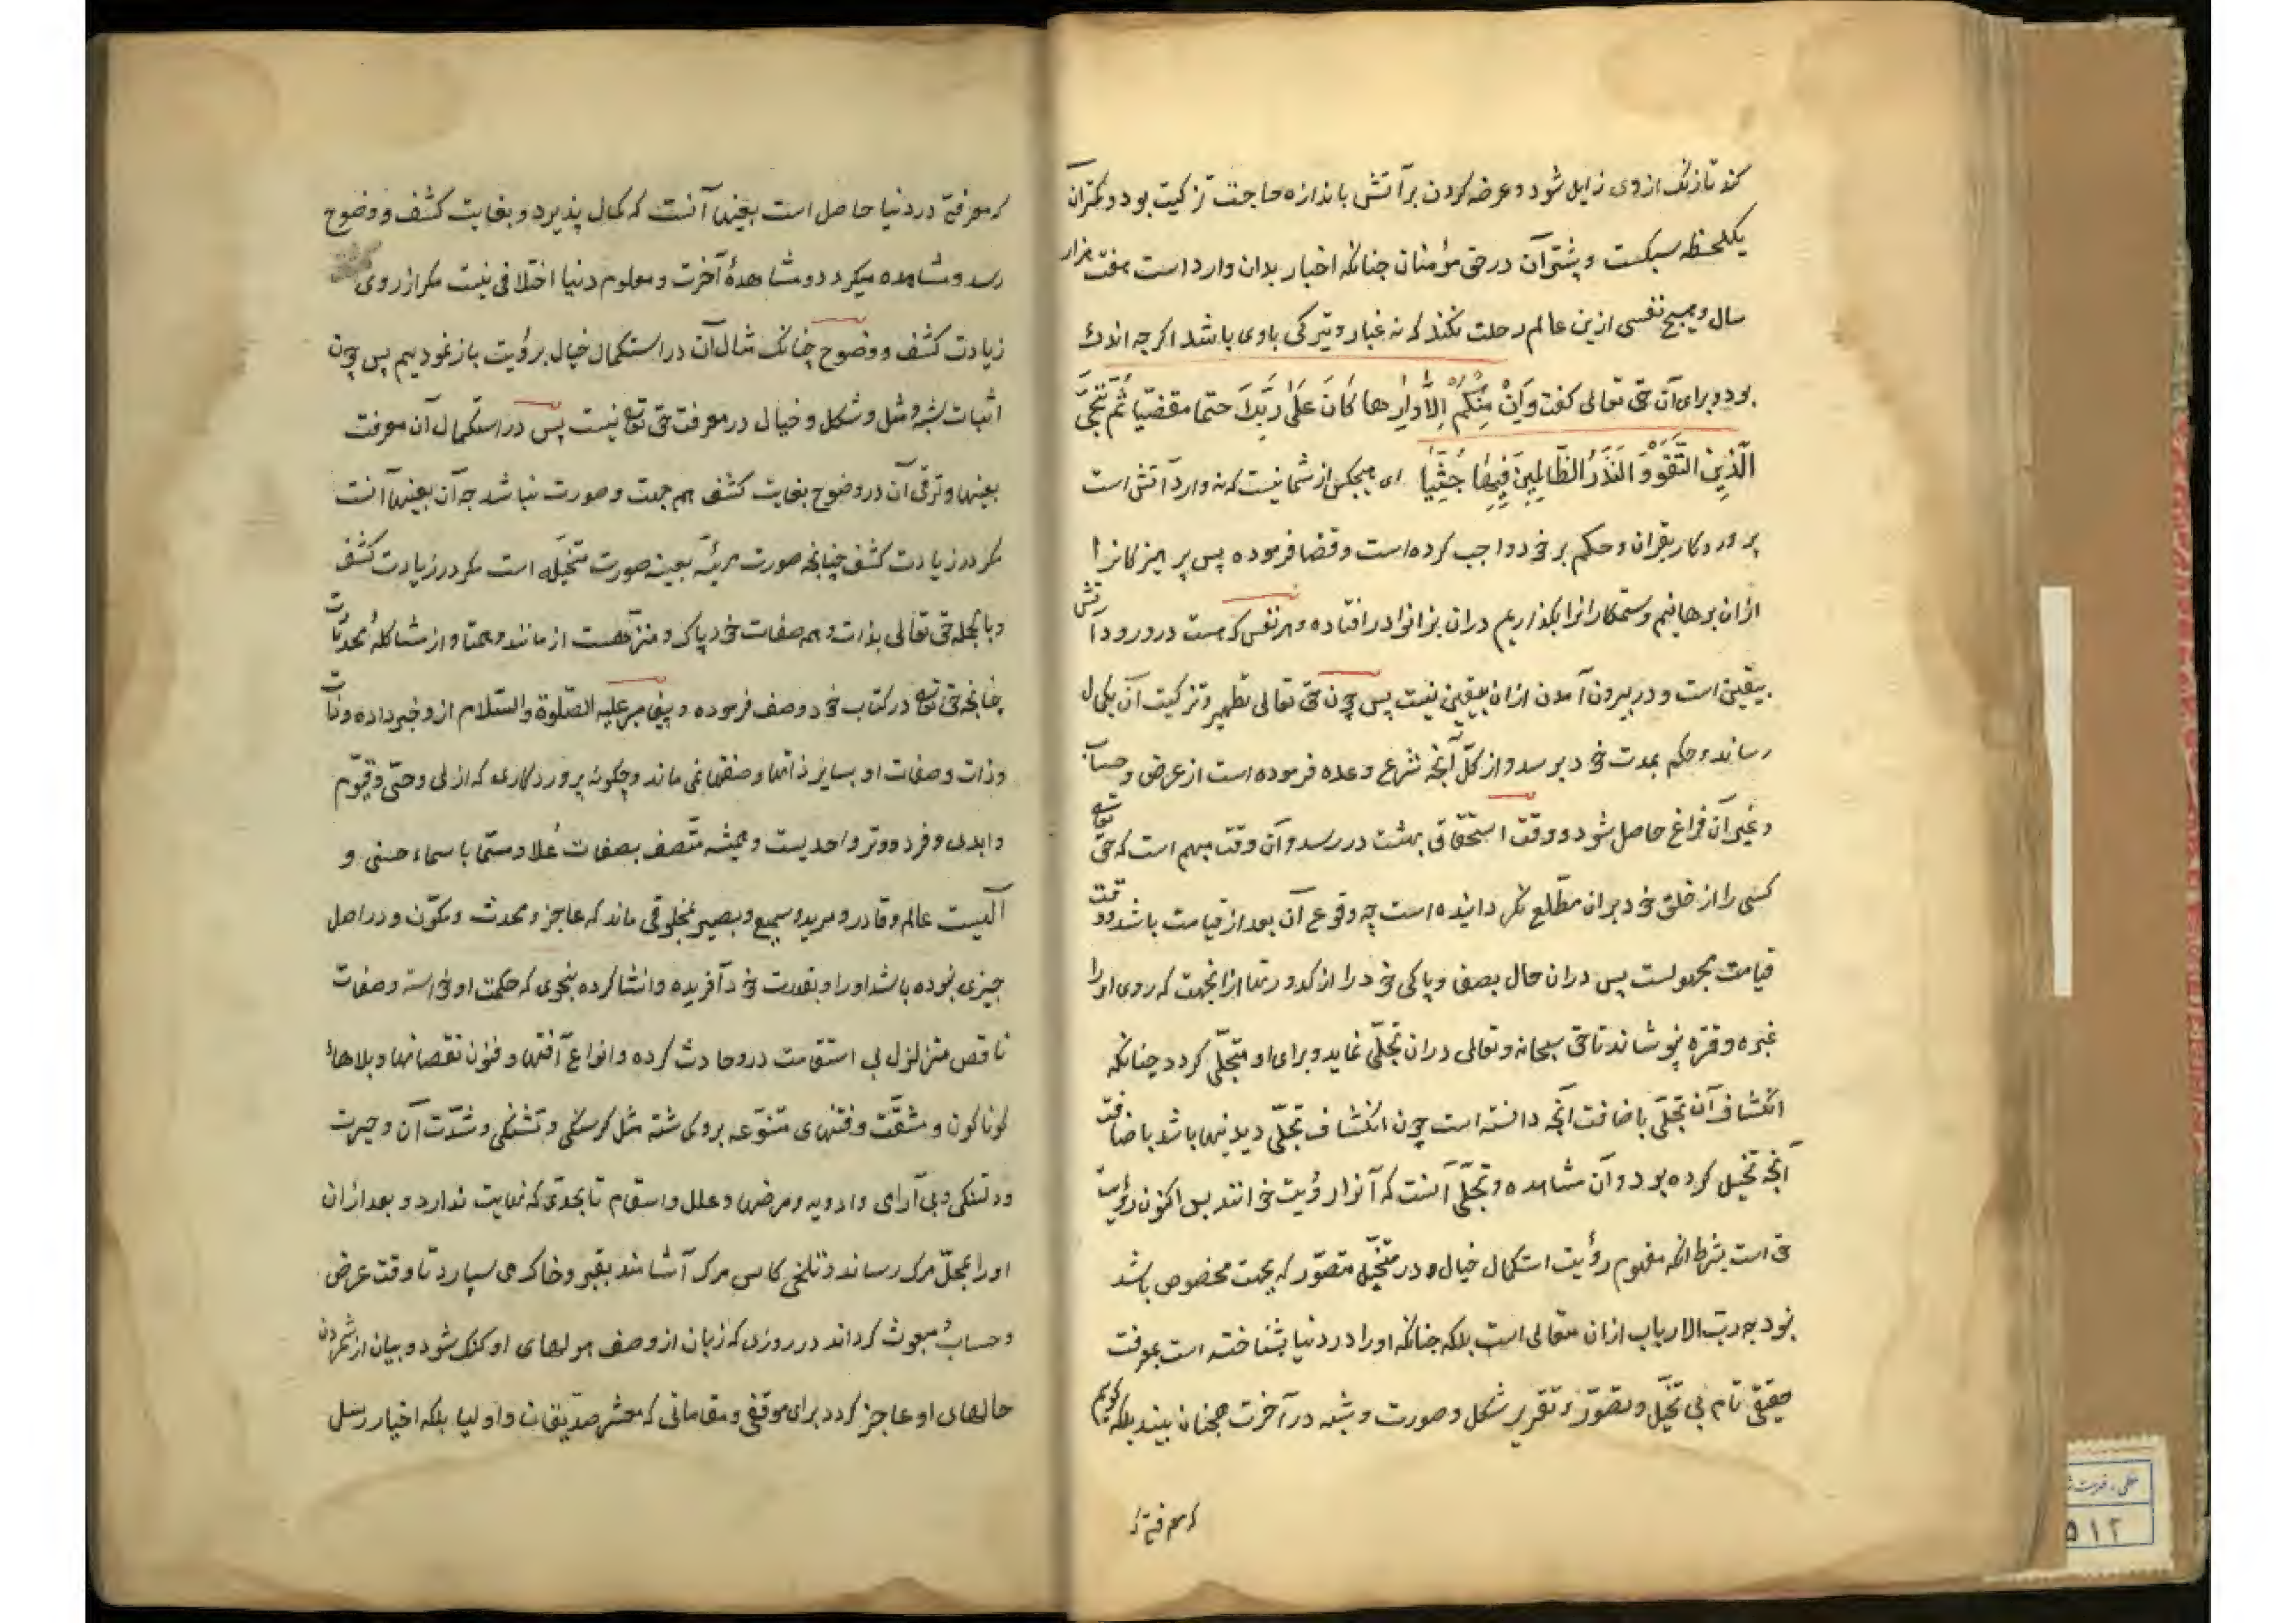 کند تا زنک ازوی زایل شود و عرضه کردن بر آتش باندازه حاجت تزکیت بود و کمتر آن
یکلحظه سبکست و بیشتر آن در حق مؤمنان چنانکه اخبار بدان وارد است هفت هزار
سال و هیچ نفسی ازین عالم رحلت نکند که نه غبار و تیرکی باوی باشد اکرچه اندک
بود و برای آن حق تعالی کفت وَاِنْ مِنْکُمْ اِلاّ وارِدها کانَ عَلی رَبِّکَ حتما مقضیّا ثُمّ نُنَجّی
الَّذِینَ اتَّقَوْ وَ نَذَرُ الظّالِمِینَ فِیها جُثِیًّا ای هیچکس از شما نیست که نه وارد آتش است
پروردکار بقران و حکم بر خود واجب کرده است و قضا فرموده پس پرهیزکانرا
ازان برهانیم و ستمکارانرا بکذاریم دران بزانو در افتاده و هر نفس که هست در ورود آتش
بیقین است و در بیرون آمدن ازان بیقین نیست پس چون حق تعالی تطهیر و تزکیت آن بکمال
رساند و حکم بمدت خود برسد و از کلّ آنچه شرع وعده فرموده است از عرض و حساب
و غیر آن فراغ حاصل شود و وقت استحقاق بهشت در رسد و آن وقت مبهم است که حق تعالی
کسی را از خلق خود بران مطّلع نکردانیده است چه وقوع آن بعد از قیامت باشد و وقت
قیامت مجهولست پس دران حال بصفا و پاکی خود را از کدورتها ازانجهت که روی او را
غبره و قتره نپوشاند تا حق سبحانه و تعالی دران تجلّی نماید و برای او متجلّی کردد چنانکه
انکشاف آن تجلّی باضافت آنچه دانسته است چون انکشاف تجلّی دیدنیها باشد باضافت
آنچه تخیل کرده بود و آن مشاهده و تجلّی آنست که آنرا رؤیت خوانند پس اکنون رؤیت
حق است بشرط آنکه مفهوم رؤیت استکمال خیال و در متخیّل متصوّر که بجهت مخصوص باشد
نبود چه ربّ الارباب ازان متعالی است بلکه چنانکه او را در دنیا بشناخته است بمعرفت
حقیقی تام بی تخیّل و تصوّر و تقریر شکل و صورت و شبه در آخرت همچنان بیند بلکه کویم
که معرفتی که
که معرفتی در دنیا حاصل است بعینها آنست که کمال پذیرد و بغایت کشف و وضوح
رسد و مشاهده میکردد و مشاهدۀ آخرت و معلوم دنیا اختلافی نیست مکر از روی
زیادت کشف و وضوح چنانک مثال آن در استکمال خیال برؤیت باز نمودیم پس چون
اثبات شبه و مثل و شکل و خیال در معرفت حق تعالی نیست پس در استکمال آن معرفت
بعینها و ترقی آن در وضوح بغایت کشف هم جهت و صورت نباشد چه آن بعینها آنست
مکر در زیادت کشف چنانچه صورت مرئیّه بعینه صورت متخیّله است مکر در زیادت کشف
و بالجمله حق تعالی بذات و همه صفات خود پاک و منزّهست از مانند و همتا و از مشاکلۀ محدثات
چنانچه حق تعالی در کتاب خود وصف فرموده و پیغامبر علیه الصّلوة والسّلام ازو خبر داده
و ذات و صفات او بسایر ذاتها و صفتها نمی ماند و چکونه پروردکاری که ازلی و حیّ و قیّوم
و ابدی و فرد و وتر و احدیست و همیشه متّصف بصفات عُلا و مسمّا باسماء حسنی و
آلهیست عالم و قادر و مرید و سمیع و بصیر بمخلوقی ماند که عاجز و محدث و مکوّن و در اصل
چیزی نبوده باشد او را بقدرت خود آفریده و انشا کرده بنحوی که حکمت او خواسته و صفات
ناقص متزلزل بی استقامت درو حادث کرده و انواع آفتها و فنون نقصانها و بلاهاء
کوناکون و مشقّت و فتنهای متنوّعه برو کماشته مثل کرسنکی و تشنکی و شدّت آن و حیرت
و دلتنکی و بی آرامی و ادویه و مرضها و علل و اسقام تا بحدّی که نهایت ندارد و بعد ازان
او را بمحلّ مرک رساند و تلخی کاس مرک آشامند بقبر و خاک می سپارد تا وقت عرض
و حساب مبعوث کرداند در روزی که زبان از وصف هولهای او کنک شود و بیان از شمردن
حالهای او عاجز کردد برای موقفی و مقاماتی که معشر صدّیقان و اولیا بلکه اخیار رسل
۵۱۲